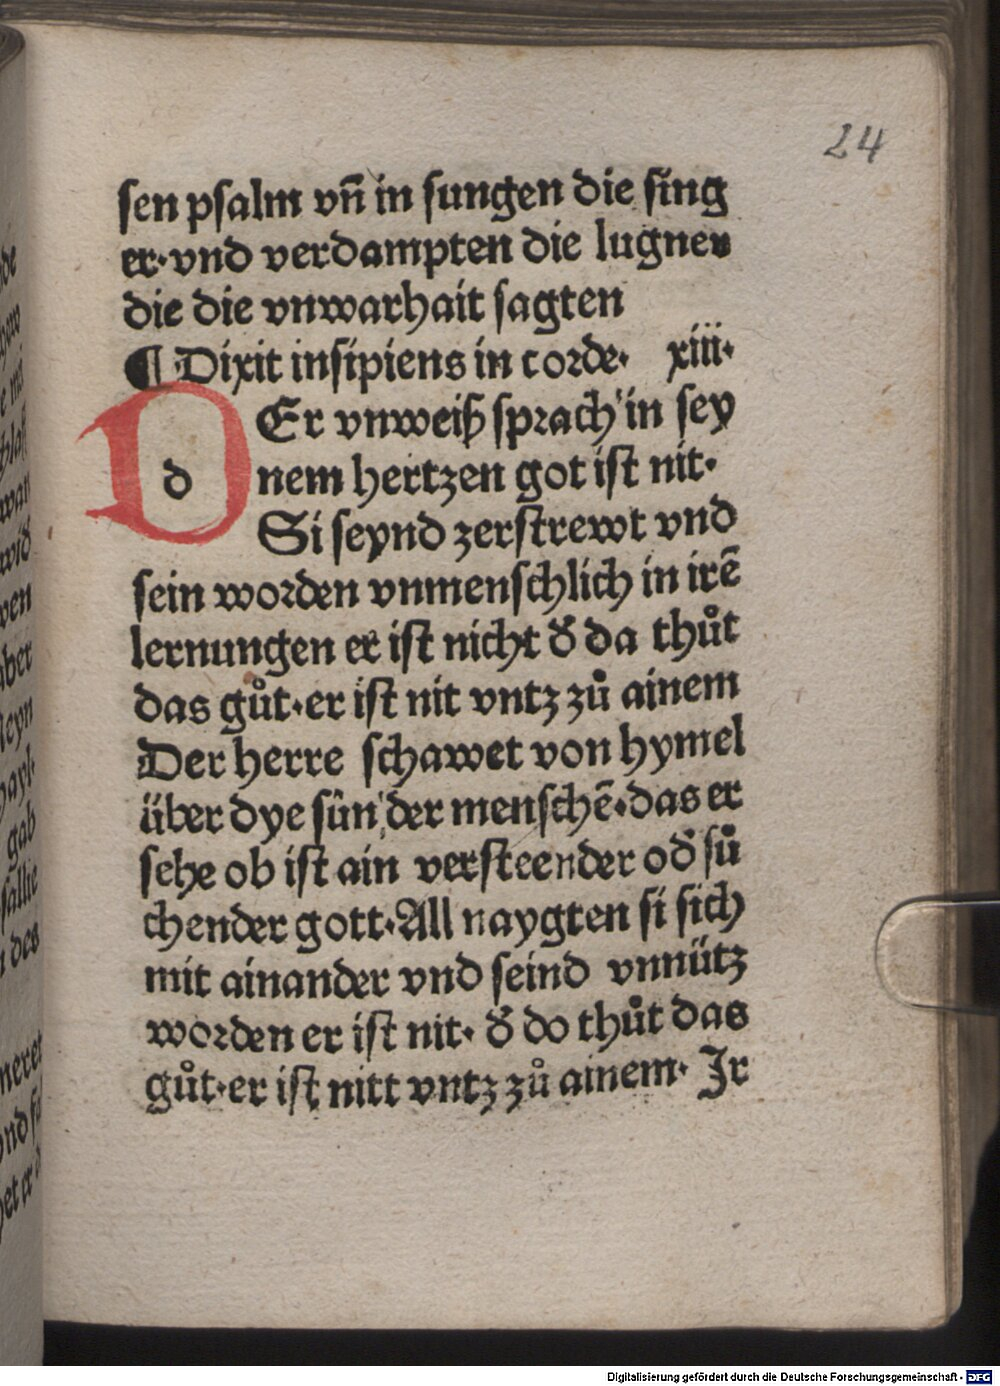 24
sen psalm vn̄ in sungen die sing
er·vnd verdampten die lugner
die die vnwarhait sagten
¶ Dixit insipiens in corde· xiii·
DEr vnweiß sprach in sey
d
nem hertzen got ist nit·
Si seynd zerstrewt vnd
sein worden vnmenschlich in irē
lernungen er ist nicht d̄ da thůt
das gůt·er ist nit vntz zů ainem
Der herre schawet von hymel
über dye sün der menschē·das er
sehe ob ist ain versteender od̄ sů
chender gott·All naygten si sich
mit ainander vnd seind vnnütz
worden er ist nit· d̄ do thůt das
gůt·er ist nitt vntz zů ainem· Jr
Digitalisierung gefördert durch die Deutsche Forschungsgemeinschaft - DFG